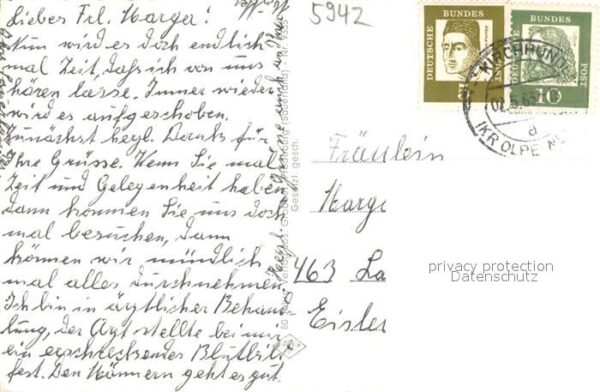 5942
Liebes Frl. Marga!
Nun wird es doch endlich
mal Zeit, daß ich von uns
hören lasse. Immer wieder
wird es aufgeschoben.
Zunächst herzl. Dank für
Ihre Grüsse. Wenn Sie mal
Zeit und Gelegenheit haben
dann kommen Sie uns doch
mal besuchen, dann
können wir mündlich
mal alles durchnehmen.
Ich bin in ärztlicher Behand-
lung, der Arzt stellte bei mir
ein erschreckendes Blutbild
fest. Den Männern geht es gut
Gesetzl. gesch.
DEUTSCHE BUNDESPOST
5
DEUTSCHE BUNDESPOST
10
KIRCHHUND
a
(KR OLPE
Fräulein
Marga
463 La
Eisler
privacy protection
Datenschutz